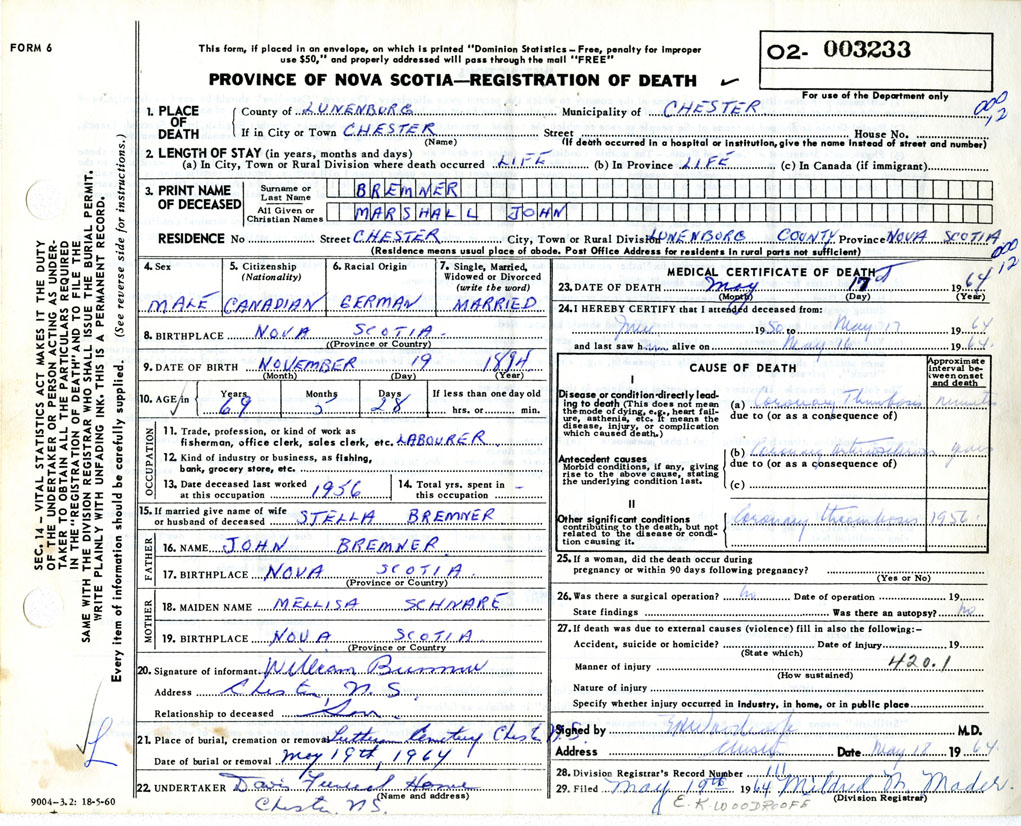 FORM 6
This form, if placed in an envelope, on which is printed "Dominion Statistics – Free, penalty for improper
use $50," and properly addressed will pass through the mail "FREE"
PROVINCE OF NOVA SCOTIA—REGISTRATION OF DEATH ✓
02- 003233
For use of the Department only
000
12
1. PLACE OF DEATH
County of LUNENBURG Municipality of CHESTER
If in City or Town CHESTER Street House No.
(Name) (If death occurred in a hospital or institution, give the name instead of street and number)
2. LENGTH OF STAY (in years, months and days)
(a) In City, Town or Rural Division where death occurred LIFE (b) In Province LIFE (c) In Canada (if immigrant)
3. PRINT NAME OF DECEASED
Surname or Last Name BREMNER
All Given or Christian Names MARSHALL JOHN
RESIDENCE No Street CHESTER City, Town or Rural Division LUNENBURG COUNTY Province NOVA SCOTIA
(Residence means usual place of abode. Post Office Address for residents in rural parts not sufficient)
000
12
4. Sex MALE
5. Citizenship (Nationality) CANADIAN
6. Racial Origin GERMAN
7. Single, Married, Widowed or Divorced (write the word) MARRIED
8. BIRTHPLACE NOVA SCOTIA
((Province or Country)
9. DATE OF BIRTH NOVEMBER 19 1894
(Month) (Day) (Year)
10. AGE in Years 69 Months 5 Days 28 If less than one day old
hrs. or min.
OCCUPATION
11. Trade, profession, or kind of work as
fisherman, office clerk, sales clerk, etc. LABOURER
12. Kind of industry or business, as fishing,
bank, grocery store, etc.
13. Date deceased last worked at this occupation 1956
14. Total yrs. spent in this occupation -
15. If married give name of wife or husband of deceased STELLA BREMNER
FATHER
16. NAME JOHN BREMNER
17. BIRTHPLACE NOVA SCOTIA
(Province or Country)
MOTHER
18. MAIDEN NAME MELLISA SCHNARE
19. BIRTHPLACE NOVA SCOTIA
(Province or Country
20. Signature of informant William Bremner
Address Chester, N.S.
Relationship to deceased Son
21. Place of burial, cremation or removal Lutheran Cemetery Chester N.S.
Date of burial or removal May 19th, 1964
22. UNDERTAKER Davis Funeral Home
(Name and address)
Chester N.S.
MEDICAL CERTIFICATE OF DEATH
23. DATE OF DEATH May 17 1964
(Month) (Day) (Year)
24. I HEREBY CERTIFY that I attended deceased from:
1950 to May 17 1964
and last saw him alive on May 16 1964
CAUSE OF DEATH
Approximate interval between onset and death
I
Disease or condition directly leading to death (This does not mean the mode of dying, e.g., heart failure, asthenia, etc. It means the disease, injury, or complication which caused death.)
(a) Coronary Thrombosis minutes
due to (or as a consequence of)
Antecedent causes
Morbid conditions, if any, giving rise to the above cause, stating the underlying condition last.
(b) Coronary years
due to (or as a consequence of)
(c)
II
Other significant conditions contributing to the death, but not related to the disease or condition causing it.
Coronary thrombosis 1956
25. If a woman, did the death occur during
pregnancy or within 90 days following pregnancy?
(Yes or No)
26. Was there a surgical operation? No Date of operation 19
State findings Was there an autopsy? No
27. If death was due to external causes (violence) fill in also the following:–
Accident, suicide or homicide? Date of injury 19
(State which)
Manner of injury 420.1
(How sustained)
Nature of injury
Specify whether injury occurred in industry, in home, or in public place
Signed by M.D.
Address Chester Date May 18 1964
28. Division Registrar's Record Number 111
29. Filed May 19th 1964 Mildred M Mader.
(Division Registrar)
E.K. WOODROOFE
SEC. 14 – VITAL STATISTICS ACT MAKES IT THE DUTY
OF THE UNDERTAKER OR PERSON ACTING AS UNDER-
TAKER TO OBTAIN ALL THE PARTICULARS REQUIRED
IN THE "REGISTRATION OF DEATH" AND TO FILE THE
SAME WITH THE DIVISION REGISTRAR WHO SHALL ISSUE THE BURIAL PERMIT.
WRITE PLAINLY WITH UNFADING INK. THIS IS A PERMANENT RECORD.
Every item of information should be carefully supplied. (See reverse side for instructions.)
L
9004-3.2: 18-5-60